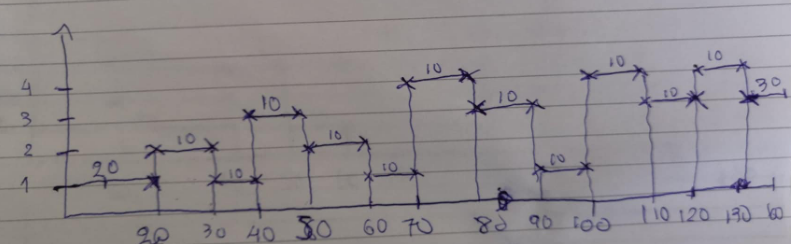 10 10 10
4 10 30
3 10 10 10
2 10
20 10 10
1 10
20 30 40 50 60 70 80 90 100 110 120 130 60